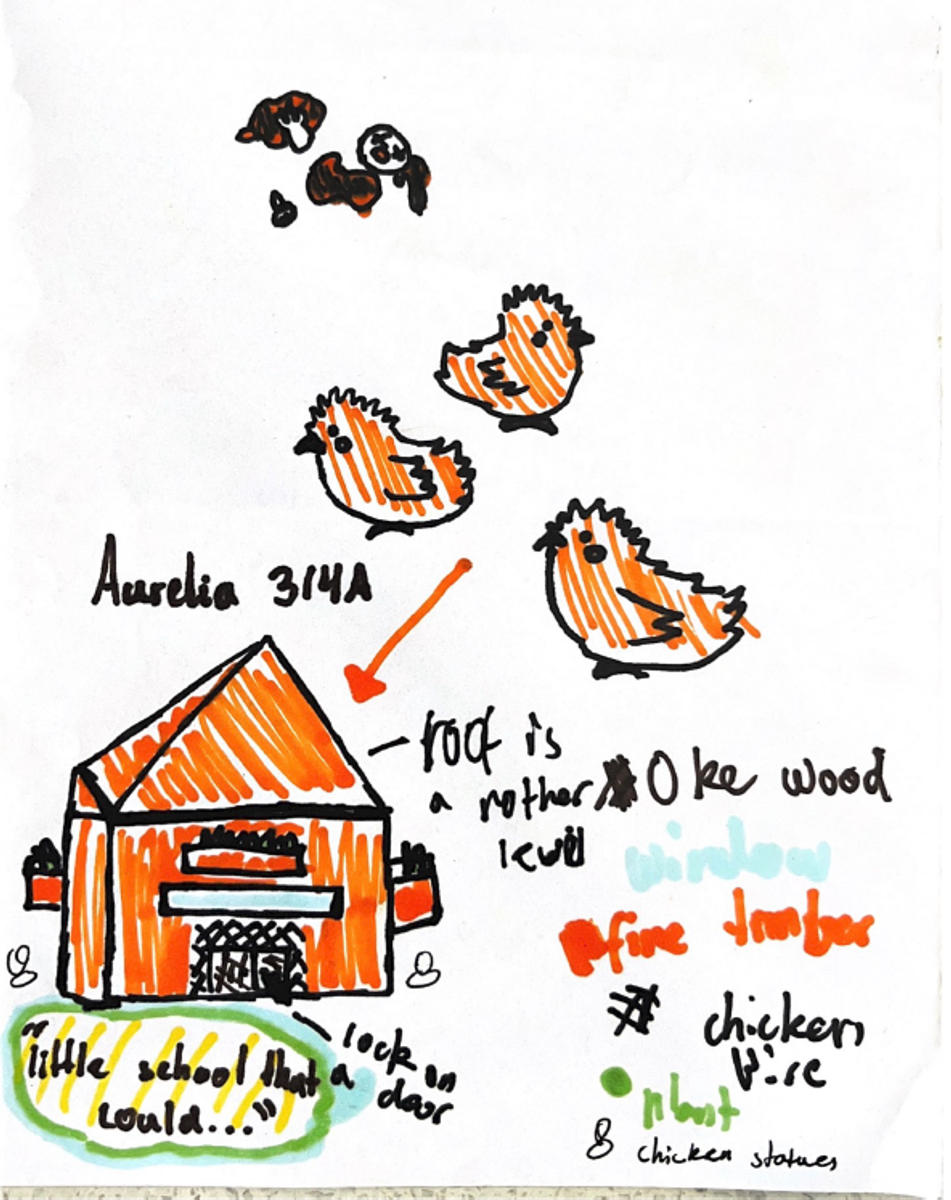 Aurelia 3/4A
roof is
a nother
level
Oke wood
window
fine timber
chicken
wire
plant
chicken statues
lock on
a door
"little school that
could..."